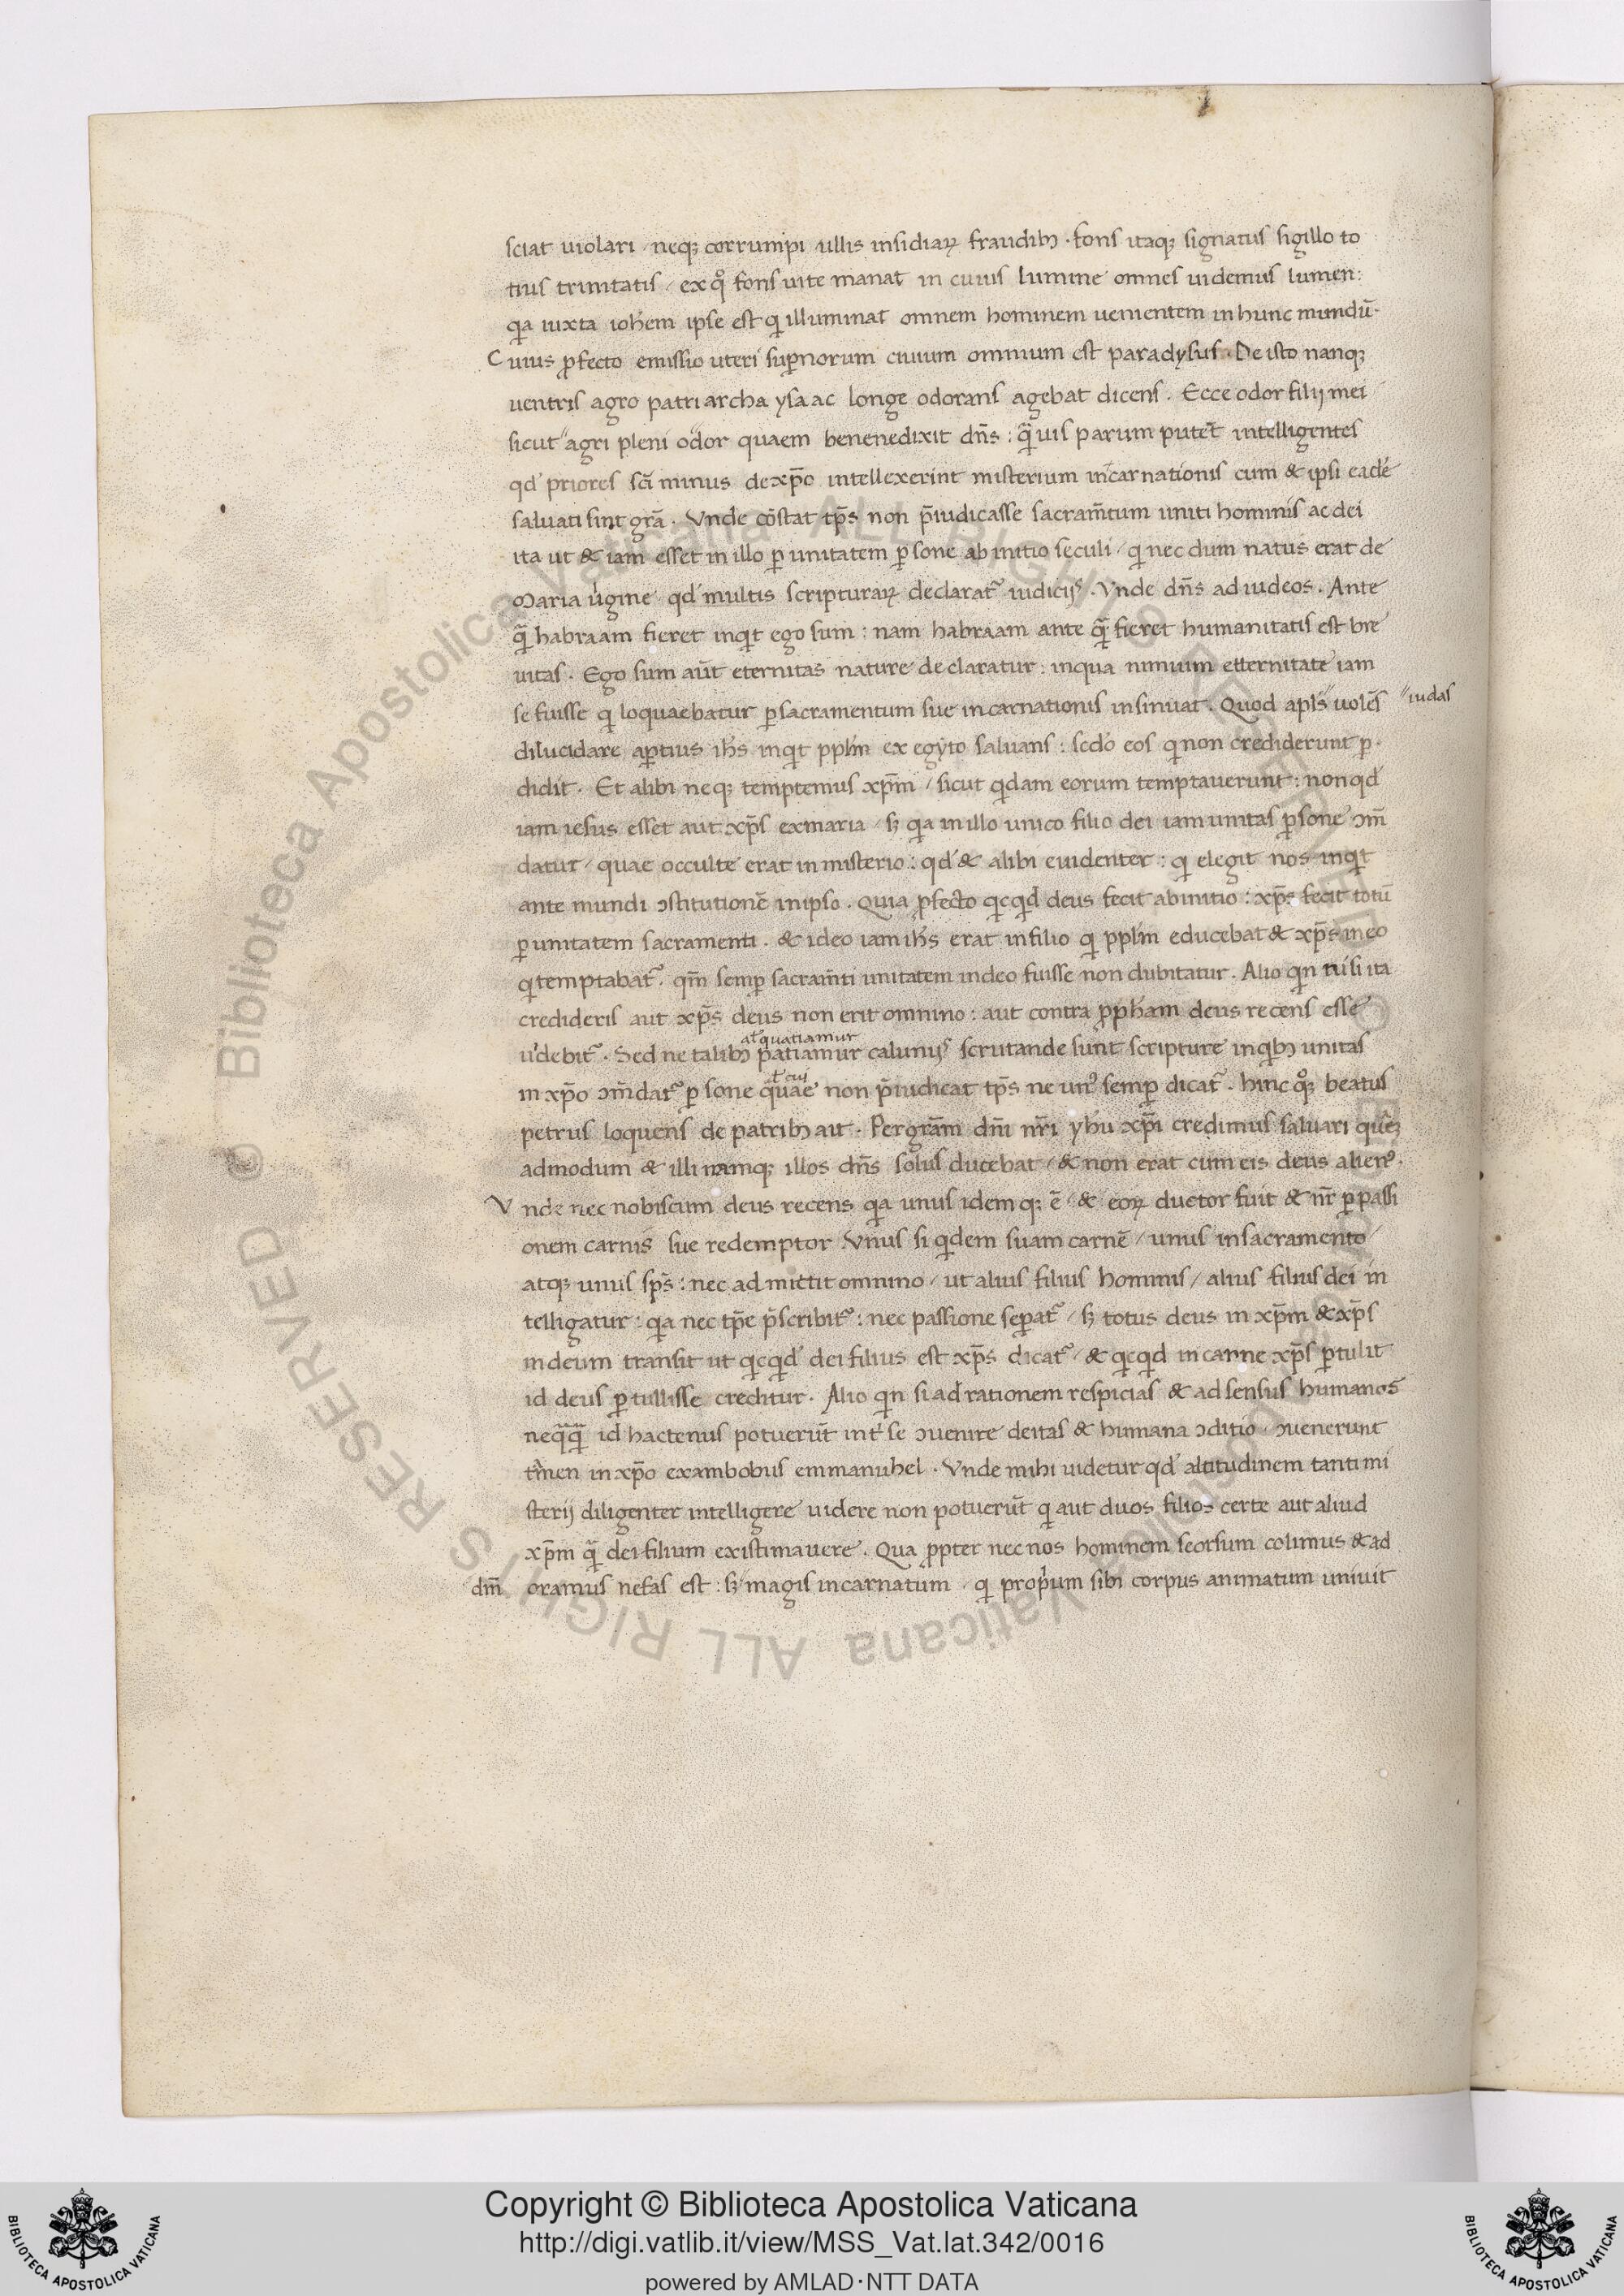 sciat uiolari / neq; corrumpi / ullis insidiaꝝ fraudibꝫ . fons itaq; signatus sigillo to
tius trinitatis / ex qͦ fons uite manat in cuius lumine omnes uidemus lumen :
qa iuxta ioh̄em ipse est qi illuminat omnem hominem uenientem in hunc mundū .
Cuius ꝓfecto emissio uteri suꝑnorum ciuium omnium est paradysus . De isto nanq;
uentris agro patriarcha ysaac longe odorans agebat dicens . Ecce odor filij mei
sicut " agri pleni " odor quaem benenedixit dn̄s : qͣuis parum putēt intelligentes
qd́ priores scī minus de xp̄o intellexerint misterium incarnationis cum & ipsi eadē
saluati sint grā . Vnde cōstat tp̄s non p̄iudicasse sacram̄tum uniti hominis ac dei
ita ut & iam esset in illo ꝑ unitatem ꝑsone ab initio seculi / qi nec dum natus erat de
Maria uͥgine / qd́ multis scripturaꝝ declarat᷑ iudicijs . Vnde dn̄s ad iudeos . Ante
qͣ̄ habraam fieret inqͥt ego sum : nam habraam ante qͣ̄ fieret humanitatis est bre
uitas . Ego sum aūt eternitas nature declaratur : in qua nimium etternitate iam
se fuisse qi loquaebatur ꝑ sacramentum sue incarnationis insinuat . Quod apls̄ " uolēs " iudas
dilucidare aꝑtius ih̄s inqͥt ppl̄m ex egyto saluans : sedo eos qi non crediderunt ꝑ .
didit . Et alibi neq; temptemus xp̄m / sicut qͥdam eorum temptauerunt : non qd́
iam iesus esset aut xp̄s ex maria / sꝫ qa in illo unico filio dei iam unitas ꝑsone ꝯm̄
datur / quae occulte erat in misterio : qd́ & alibi euidenter : qi elegit nos inqͥt
ante mundi ꝯstitutionē in ipso . Quia ꝓfecto qͥcqͥd deus fecit ab initio : xp̄s fecit totū
ꝑ unitatem sacramenti . & ideo iam ih̄s erat in filio qi ppl̄m educebat & xp̄s in eo
qi temptabat᷑ . qm̄ semꝑ sacram̄ti unitatem in deo fuisse non dubitatur . Alio qͥn tu si ita
credideris aut xp̄s deus non erit omnino : aut contra ꝓph̄am deus recens esse
uͥdebit᷑ . Sed ne talibꝫ patiamur calunijs scrutande sunt scripture in qͥbꝫ unitas
at᷑ quatiamur
in xp̄o ꝯm̄dat᷑ ꝑsone quae non p̄iudicat tp̄s ne unꝰ semꝑ dicat᷑ . hinc qͦꝫ beatus
t᷑ cui
petrus loquens de patribꝫ ait . Per grām dn̄i nr̄i yh̄u xp̄i credimus saluari quēꝫ
admodum & illi namq; illos dn̄s solus ducebat / & non erat cum eis deus alienꝰ .
Vnde nec nobiscum deus recens qa unus idemq; ē / & eoꝝ ductor fuit & nr̄ ꝑ passi
onem carnis sue redemptor . Vnus si qͥdem suam carnē / unus in sacramento /
atq; unus sp̄s : nec admittit omnino / ut alius filius hominis / alius filius dei in
telligatur : qa nec tp̄e p̄scribit᷑ : nec passione seꝑat᷑ / sꝫ totus deus in xp̄m & xp̄s
in deum transit ut qͥcqͥd́ dei filius est xp̄s dicat᷑ / & qͥcqͥd in carne xp̄s ꝑtulit
id deus ꝑtullisse creditur . Alio qͥn si ad rationem respicias & ad sensus humanos
neqͣqͣ̄ id hactenus potuerūt int̕ se ꝯuenire deitas & humana ꝯditio . ꝯuenerunt
tm̄en in xp̄o ex ambobus emmanuhel . Vnde mihi uidetur qd́ altitudinem tanti mi
sterij diligenter intelligere uidere non potuerūt qi aut duos filios certe aut aliud
xp̄m qͣ̄ dei filium existimauere . Qua ꝓpter nec nos hominem seorsum colimus & ad
dm̄ oramus nefas est : sꝫ magis incarnatum / qi propͥum sibi corpus animatum uniuit
Copyright © Biblioteca Apostolica Vaticana
http://digi.vatlib.it/view/MSS_Vat.lat.342/0016
powered by AMLAD·NTT DATA
BIBLIOTECA APOSTOLICA VATICANA
BIBLIOTECA APOSTOLICA VATICANA
© Biblioteca Apostolica Vaticana ALL RIGHTS RESERVED
© Biblioteca Apostolica Vaticana ALL RIGHTS RESERVED